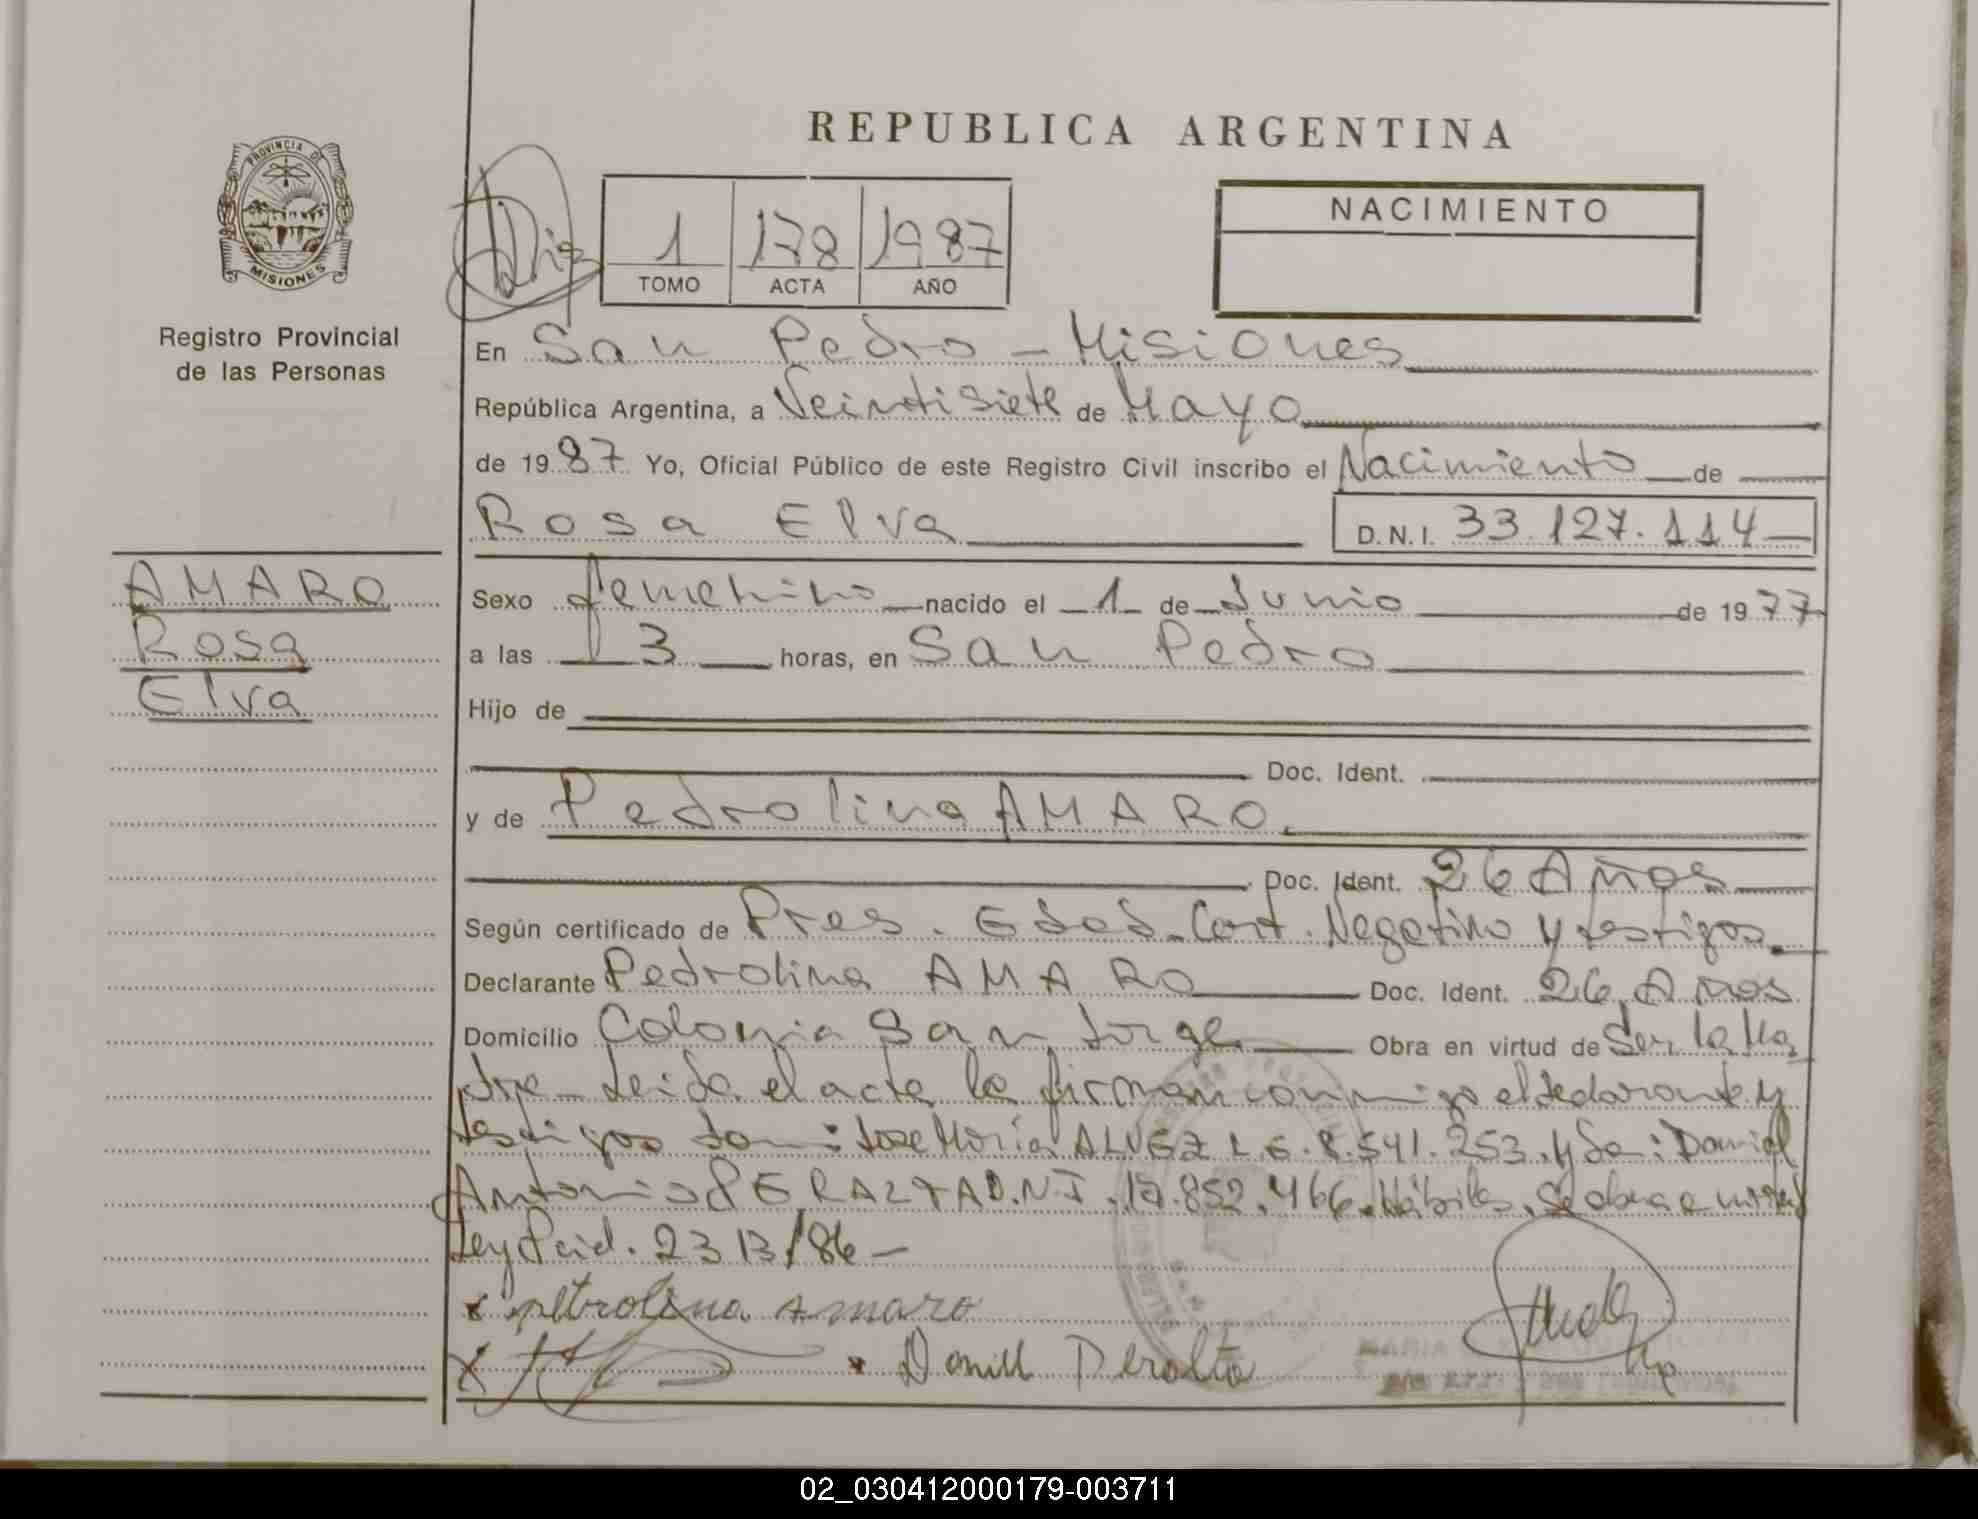 REPUBLICA ARGENTINA
PROVINCIA DE
MISIONES
Registro Provincial
de las Personas
1 178 1987
TOMO ACTA AÑO
NACIMIENTO
En San Pedro - Misiones
República Argentina, a Veintisiete de Mayo
de 1987 Yo, Oficial Público de este Registro Civil inscribo el Nacimiento de
Rosa Elva D.N.I. 33.127.114
AMARO
Rosa
Elva
Sexo femenino nacido el 1 de Junio de 1977
a las 3 horas, en San Pedro
Hijo de
Doc. Ident.
y de Pedrolina AMARO.
Doc. Ident. 26 Años
Según certificado de Pres. Edad. Cert. Negativo y testigos.
Declarante Pedrolina AMARO Doc. Ident. 26 Años
Domicilio Colonia San Jorge Obra en virtud de Ser la Ma
dre - Leida el acta la firman conmigo el declarante y
testigos son: Jose Maria ALVEZ L.E. 8.541.253. y Da: Daniel
Antonio PERALTA D.N.I. 17.852.466. Hábiles. Se obra e virtud
Ley 2313/86 -
x petrolina Amaro
x Daniel Peralta
02_030412000179-003711